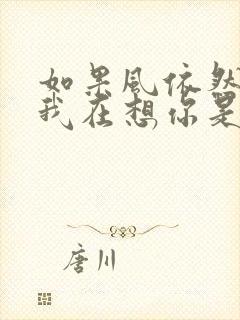 如果風依然
我在想你是
唐川